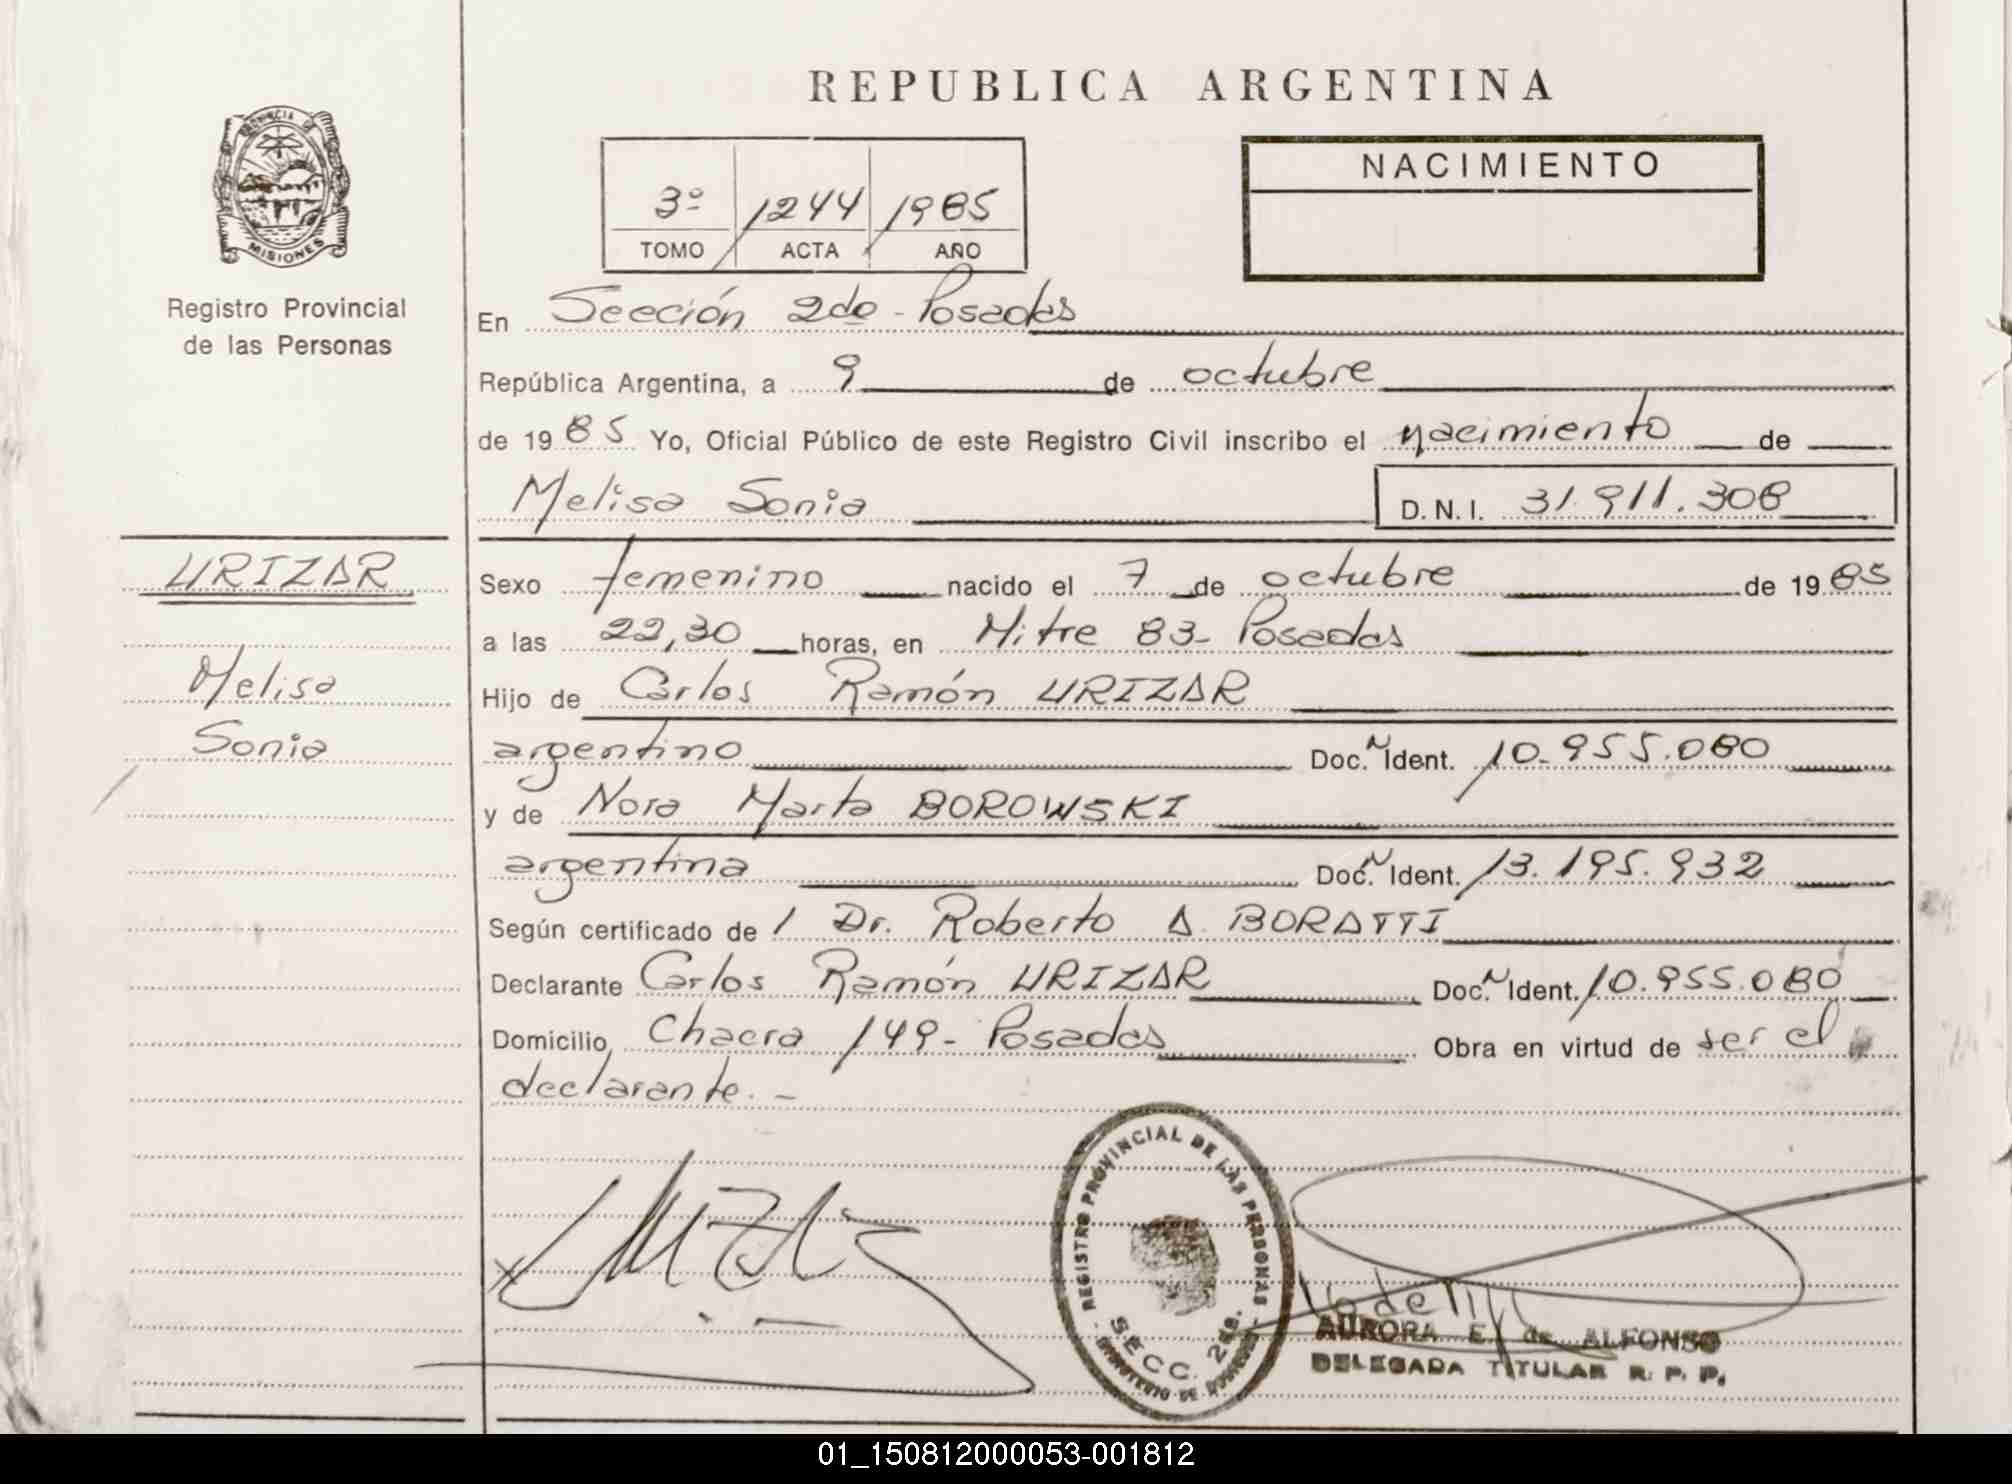 REPUBLICA ARGENTINA
PROVINCIA DE
MISIONES
Registro Provincial
de las Personas
3º 1244 1985
TOMO ACTA AÑO
NACIMIENTO
En Sección 2da - Posadas
República Argentina, a 9 de octubre
de 1985 Yo, Oficial Público de este Registro Civil inscribo el nacimiento de
Melisa Sonia D.N.I. 31.911.308
URIZAR
Melisa
Sonia
Sexo femenino nacido el 7 de octubre de 1985
a las 22,30 horas, en Mitre 83- Posadas
Hijo de Carlos Ramón URIZAR
argentino Doc. N Ident. 10.955.080
y de Nora Marta BOROWSKI
argentina Doc. N Ident. 13.195.932
Según certificado de / Dr. Roberto A. BORATTI
Declarante Carlos Ramón URIZAR Doc. N Ident. 10.955.080
Domicilio Chacra 149- Posadas Obra en virtud de ser el
declarante.-
REGISTRO PROVINCIAL DE LAS PERSONAS
SECC. 2
AURORA E. de ALFONSO
DELEGADA TITULAR R. P. P.
01_150812000053-001812